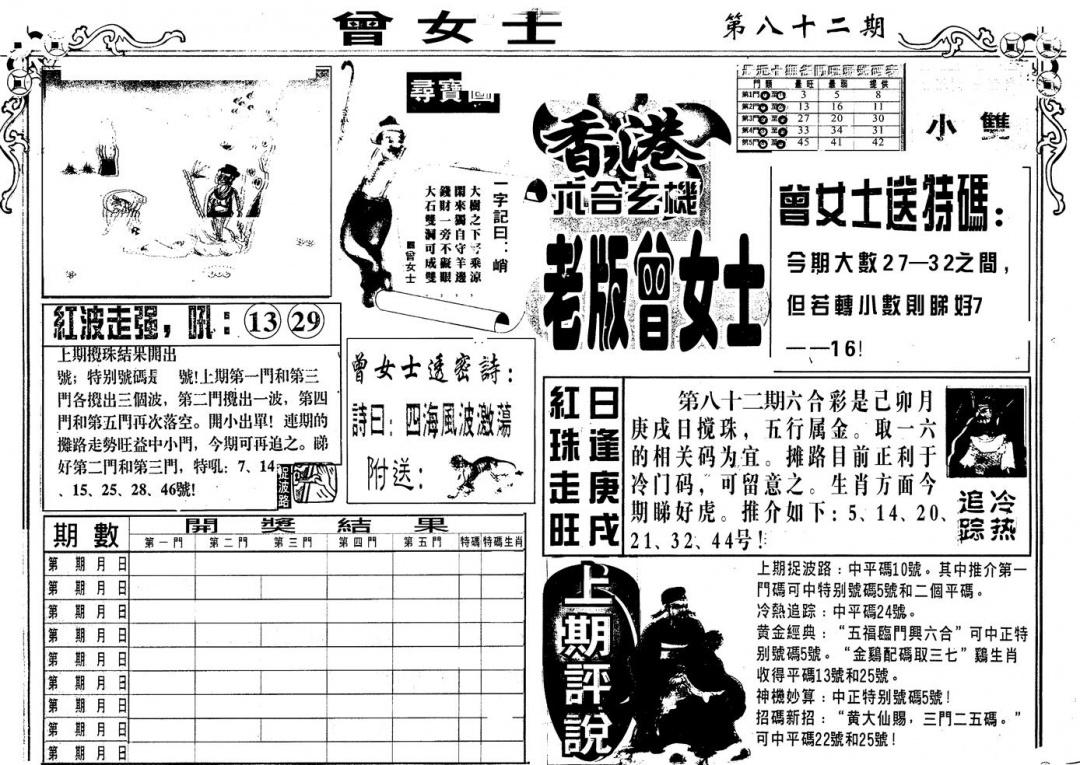 曾女士
第八十二期
尋寶圖
一字記曰：峭
大樹之下可乘涼
閑來獨自守羊邊
錢財一旁不礙眼
大石雙洞可成雙
曾女士
香港
六合玄機
老版曾女士
門類 最旺 最弱 提供
第1門 至 3 5 8
第2門 至 13 16 11
第3門 至 27 20 30
第4門 至 33 34 31
第5門 至 45 41 42
小 雙
曾女士送特碼：
今期大數27—32之間，
但若轉小數則睇好7
——16!
紅波走强，吼：13 29
上期攪珠結果開出
號；特别號碼是 號!上期第一門和第三
門各攪出三個波，第二門攪出一波，第四
門和第五門再次落空。開小出單！連期的
攤路走勢旺益中小門，今期可再追之。睇
好第二門和第三門，特吼：7、14
、15、25、28、46號!
捉波路
曾女士透密詩：
詩曰：四海風波激蕩
附送：
紅珠走旺
日逢庚戌
第八十二期六合彩是己卯月
庚戌日搅珠，五行属金。取一六
的相关码为宜。摊路目前正利于
冷门码，可留意之。生肖方面今
期睇好虎。推介如下：5、14、20、
21、32、44号！
冷热
追踪
期數 開獎結果
第一門 第二門 第三門 第四門 第五門 特碼 特碼生肖
第 期 月 日
第 期 月 日
第 期 月 日
第 期 月 日
第 期 月 日
第 期 月 日
第 期 月 日
第 期 月 日
第 期 月 日
上期評説
上期捉波路：中平碼10號。其中推介第一
門碼可中特别號碼5號和二個平碼。
冷熱追踪：中平碼24號。
黄金經典：“五福臨門興六合”可中正特
别號碼5號。“金鷄配碼取三七”鷄生肖
收得平碼13號和25號。
神機妙算：中正特别號碼5號！
招碼新招：“黄大仙賜，三門二五碼。”
可中平碼22號和25號！